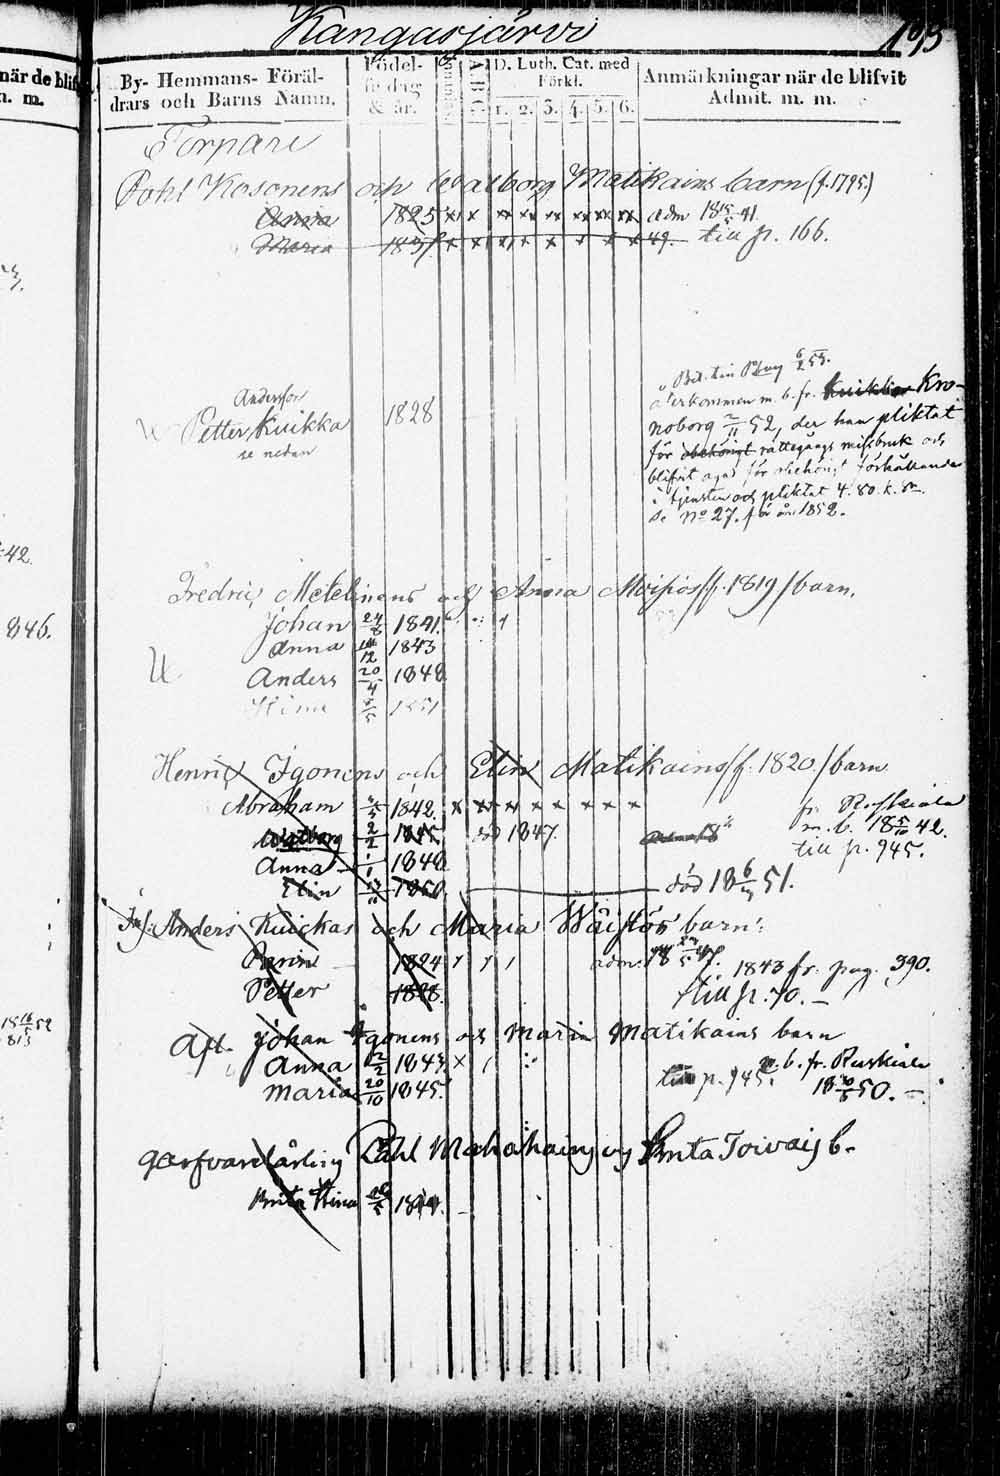 Kangasjärvi
195
när de blif
n. m.
By- Hemmans- Föräl-
drars och Barns Namn.
Födel-
se dag
& år.
A.B.C.
D. Luth. Cat. med
Förkl.
1. 2. 3. 4. 5. 6.
Anmärkningar när de blifvit
Admit. m. m.
Torpare
Påhl Kosonens och Walborg Matikains barn (f. 1795.)
Anna 1825 x x x x x x x x adm 18 41.
Maria x x x x x x x 49. till p. 166.
6/2 53.
Andersson
Petter Kuikka 1828
se nedan
återkommen m. b. fr. Kuikka Kro-
noborg 2/11 52, der han pliktat
för obehörigt rättegångs missbruk och
blifvit för obehörigt förhållande
i tjensten och pliktat 4. 80. k. Sr.
Se No 27. för år 1852.
42.
Fredric Metelinens och Anna Moisios (f. 1819) barn.
846.
Johan 24/8 1841.
Anna 14/12 1843
U
Anders 20/4 1848
Stina 5/5 1851
Henric Igonens och Elin Matikains (f. 1820.) barn
Abraham 1842. x x x x x x x x fr. Ruskiala
m. b. 18 42.
Walborg 2/2 1845 död 1847.
till p. 945.
Anna 1/1 1848
Elin 1850 död 18 6/ 51.
Inh: Anders Kuickas och Maria Wäistös barn:
Carin 1824 adm: 18 47.
1843 fr. pag. 390.
Petter 1828 till p. 70. –
18 16/5 52
813
Afl. Johan Igonens och Maria Matikains barn
Anna 2/2 1843. x m. b. fr. Ruskiala
till p. 945.
Maria 20/10 1845. 18 50. –
Garfvarelärling Påhl Mahohaing och Brita Toivaig b.
Brita Stina 26/5 1844.